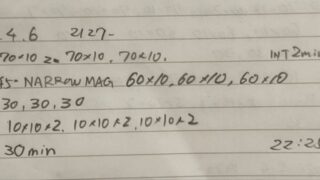 .4.6 2127-
70×10 70×10, 70×10. INT 2min
45° NARROW MAG 60×10, 60×10, 60×10
30, 30, 30
10×10×2. 10×10×2. 10×10×2
30min 22:2